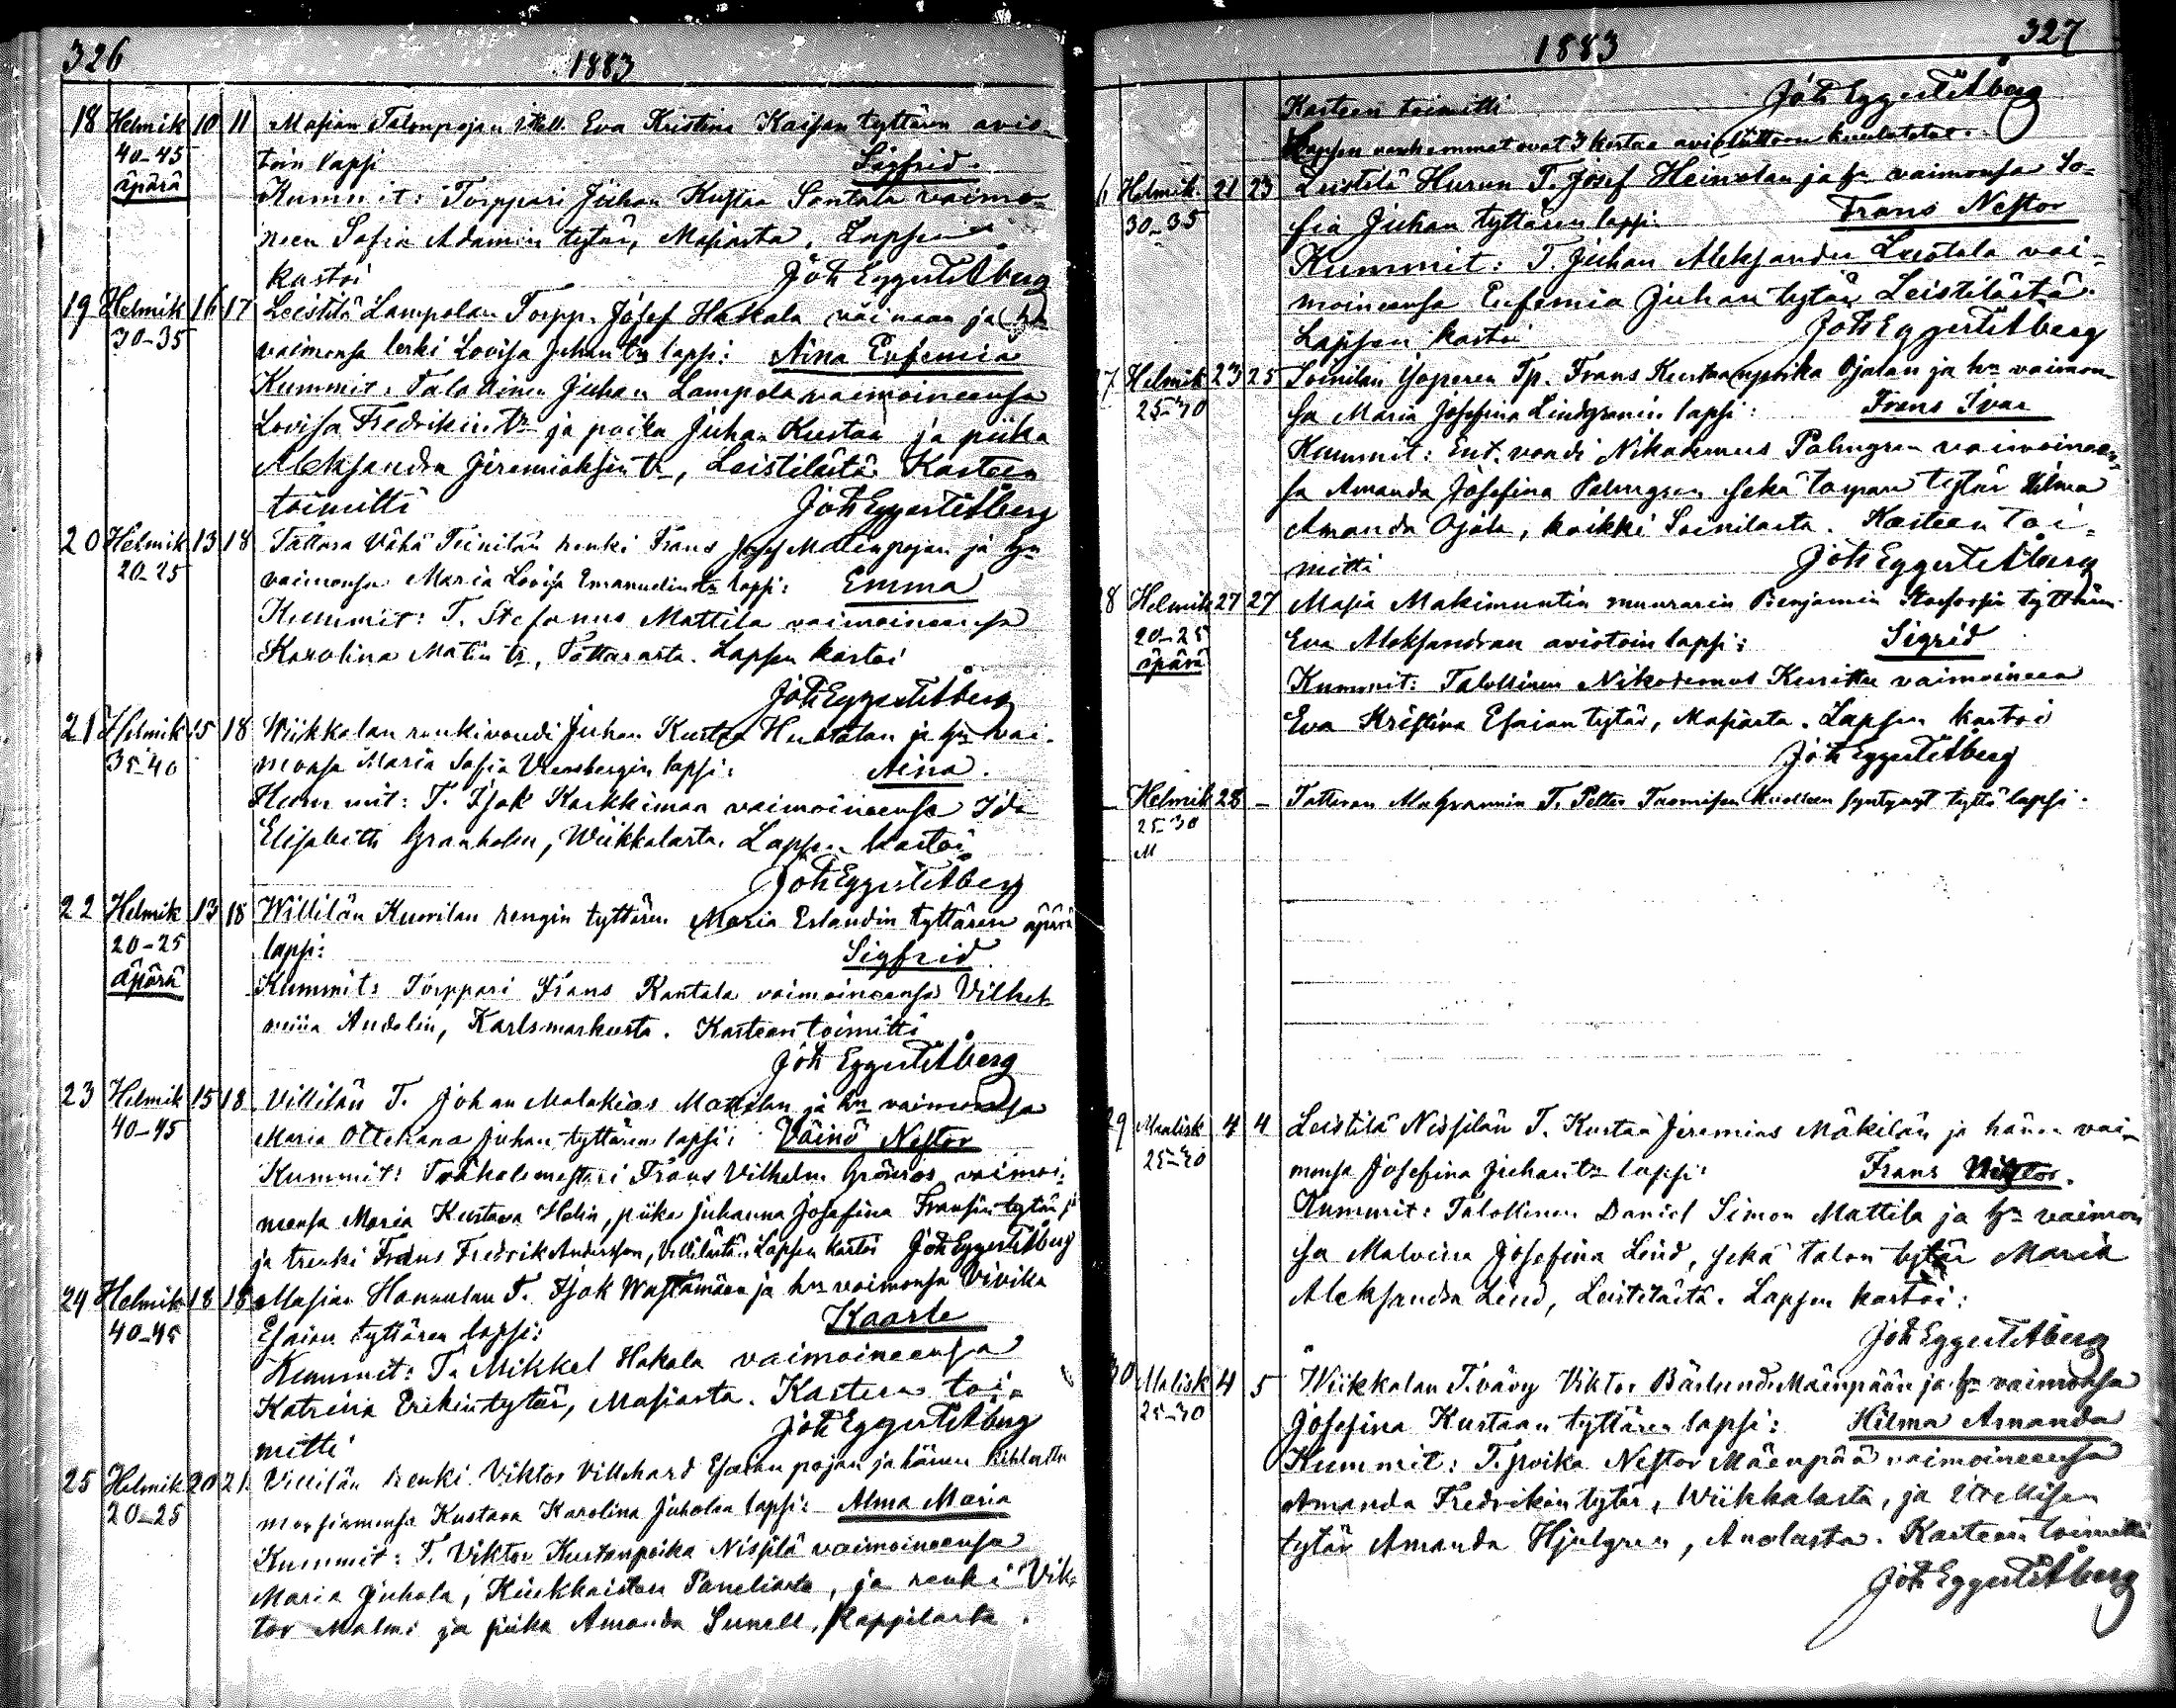 326
1883
18 Helmik 10 11 Masian Talonpojan Eva Kristina Kaisan tyttären avio-
40-45 toin lapsi Sigfrid.
äpärä Kummit: Torppari Juhan Kustaa Santala vaimo-
neen Sofia Adamin tytär, Masiasta. Lapsen
kastoi Joh Eggert Åberg
19 Helmik 16 17 Leistilä Lampolan Torpp. Josef Hakala vainaan ja hn
30-35 vaimonsa leski Lovisa Juhan tr lapsi: Aina Eufemia
Kummit: Talollinen Juhan Lampola vaimoineensa
Lovisa Fredrikin tr ja poika Juhan Kustaa ja piika
Aleksandra Jeremiaksen tr, Leistilästä. Kasteen
toimitti Joh Eggert Åberg
20 Helmik 13 18 Tattara Vähä Teinilän renki Frans Josef Matinpojan ja hn
20-25 vaimonsa Maria Lovisa Emanuelin tr lapsi: Emma
Kummit: T. Stefanus Mattila vaimoineensa
Karolina Matin tr, Tattarasta. Lapsen kastoi
Joh Eggert Åberg
21 Helmik 15 18 Wiikkalan renkivoudi Juhan Kustaa Huhtalan ja hn vai-
35-40 monsa Maria Sofia lapsi: Aina.
Kummit: T. Isak Karkkiman vaimoineensa Ida
Elisabeth Granholm, Wiikkalasta. Lapsen kastoi
Joh Eggert Åberg
22 Helmik 13 18 Willilän Kuorilan rengin tyttären Maria Erlandin tyttären äpärä
20-25 lapsi: Sigfrid.
äpärä Kummit: Torppari Frans Rantala vaimoineensa Vilhel-
miina Andelin, Karlsmarkusta. Kasteen toimitti
Joh Eggert Åberg
23 Helmik 15 18 Villilän T. Johan Malakias Mattilan ja hn vaimonsa
40-45 Maria Ottiliana Juhan tyttären lapsi: Väinö Nestor
Kummit: Frans Vilhelm Grönros vaimoi-
neensa Maria Kustava Helin, piika Juhanna Josefina Fransin tytär ja
ja trenki Frans Fredrik Andersson, Villilästä. Lapsen kastoi Joh Eggert Åberg
24 Helmik 18 18 Masian Hannulan T. Isak Wastamäen ja hn vaimonsa Vivika
40-45 Esaian tyttären lapsi: Kaarle
Kummit: T. Mikkel Hakala vaimoineensa
Katriina Erikin tytär, Masiasta. Kasteen toi-
mitti Joh Eggert Åberg
25 Helmik 20 21 Villilän renki Viktor Villehard Esaian pojan ja hänen kihlattu
20-25 morsiamensa Kustava Karolina Juholan lapsi: Alma Maria
Kummit: T. Viktor Kustaanpoika Nissilä vaimoineensa
Maria Juhola, Kiukkaisten Paneliasta, ja renki Vik-
tor Malmi ja piika Amanda Sunell, Kappilasta.
1883
327
Kasteen toimitti Joh Eggert Åberg
Lapsen vanhemmat ovat 3 kertaa avioliittoon kuulutetut.
6 Helmik. 21 23 Leistilä Hurun T. Josef Heinolan ja hn vaimonsa So-
30-35 fia Juhan tyttären lapsi Frans Nestor
Kummit: T. Juhan Aleksander vai-
moineensa Eufemia Juhan tytär Leistilästä.
Lapsen kastoi Joh Eggert Åberg
27 Helmik 23 25 Soinilan Tp. Frans Kustaanpoika Ojalan ja hn vaimon-
25-30 sa Maria Josefina Lindgrenin lapsi: Frans Ivar
Kummit: Ent. voudi Nikodemus Palmgren vaimoineen-
sa Amanda Josefina Palmgren sekä torpan tytär Hilma
Amanda Ojala, kaikki Soinilasta. Kasteen toi-
mitti Joh Eggert Åberg
8 Helmik 27 27 Masia Makimuntin muurarin Benjamin tyttären
20-25 Eva Aleksandran aviotoin lapsi: Sigrid
äpärä
Kummit: Talollinen Nikodemus Kuritta vaimoineen
Eva Kristina Esaian tytär, Masiasta. Lapsen kastoi
Joh Eggert Åberg
– Helmik 28 – Tattaran T. Petter Tuomisen kuolleen syntynyt tyttö lapsi.
25-30
M
29 Maalisk 4 4 Leistilä Nissilän T. Kustaa Jeremias Mäkilän ja hänen vai-
25-30 monsa Josefina Juhan tr lapsi: Frans Viktor.
Kummit: Talollinen Daniel Simon Mattila ja hn vaimon
sa Malvina Josefina Lind, sekä talon tytär Maria
Aleksandra Lind, Leistilästä. Lapsen kastoi:
Joh Eggert Åberg
30 Malisk 4 5 Wiikkalan T.vävy Viktor Bärlund Mäenpään ja hn vaimonsa
25-30 Josefina Kustaan tyttären lapsi: Hilma Amanda
Kummit: T. poika Nestor Mäenpää vaimoineensa
Amanda Fredrikin tytär, Wiikkalasta, ja Itsellisen
tytär Amanda Hjulgren, Anolasta. Kasteen toimitti
Joh Eggert Åberg